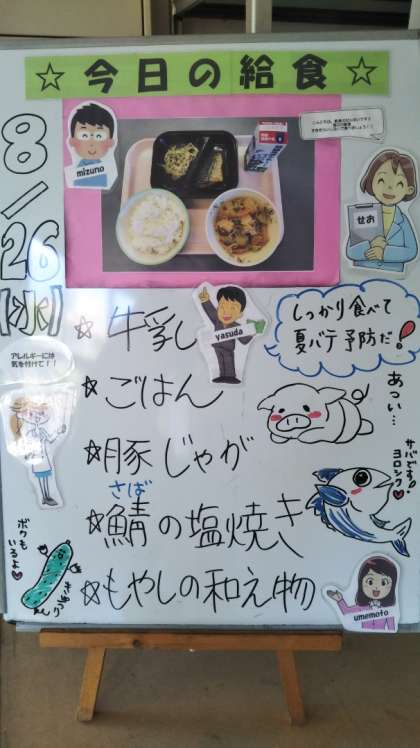 ☆今日の給食☆
8/26
【水】
mizuno
せお
yasuda
☆牛乳
☆ごはん
☆豚じゃが
さば
☆鯖の塩焼き
☆もやしの和え物
しっかり食べて
夏バテ予防だ!
あつい…
サバです♪
ヨロシク♥
アレルギーには
気を付けて!!
ボクも
いるよ♥
きゅうり
umemoto